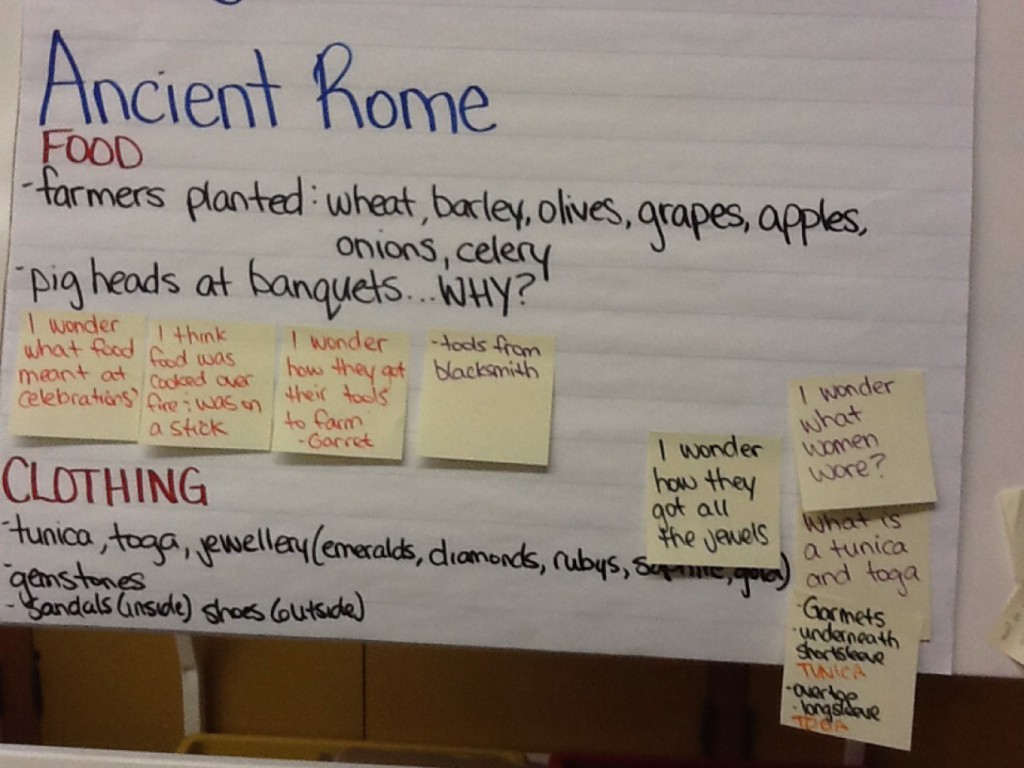 Ancient Rome
FOOD
-farmers planted: wheat, barley, olives, grapes, apples,
onions, celery
-pig heads at banquets...WHY?
I wonder
what food
meant at
celebrations?
I think
food was
cooked over
fire : was on
a stick
I wonder
how they got
their tools
to farm
-Garret
-tools from
blacksmith
CLOTHING
-tunica, toga, jewellery (emeralds, diamonds, rubys,
-gemstones
-sandals (inside) shoes (outside)
I wonder
how they
got all
the jewels
I wonder
what
women
wore?
What is
a tunica
and toga
-Garmets
-underneath
shortsleeve
TUNICA
-overtop
-longsleeve
TOGA